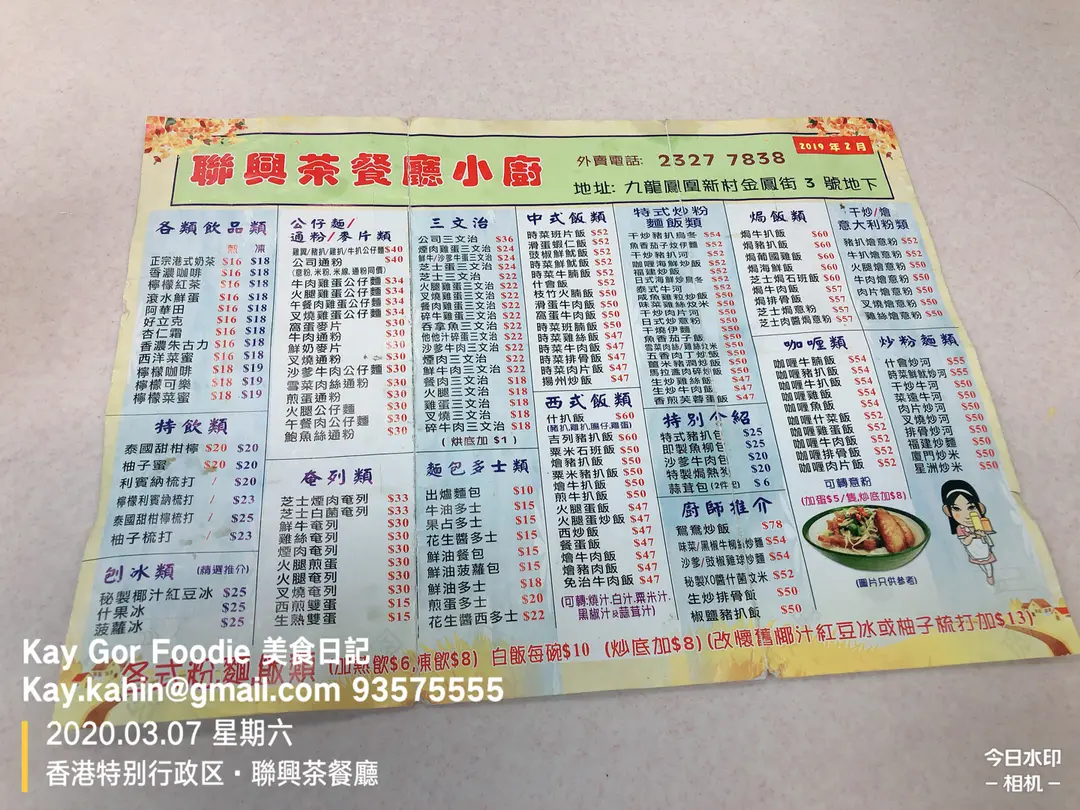 聯興茶餐廳小廚
外賣電話: 2327 7838
2019 年 2 月
地址: 九龍鳳凰新村金鳳街 3 號地下
各類飲品類
熱 凍
正宗港式奶茶 $16 $18
香濃咖啡 $16 $18
檸檬紅茶 $16 $18
滾水鮮蛋 $16 $18
阿華田 $16 $18
好立克 $16 $18
杏仁霜 $16 $18
香濃朱古力 $16 $18
西洋菜蜜 $16 $18
檸檬咖啡 $18 $19
檸檬可樂 $18 $19
檸檬菜蜜 $18 $19
特飲類
泰國甜柑檸 $20 $20
柚子蜜 $20 $20
利賓納梳打 / $23
檸檬利賓納梳打 / $23
泰式甜柑檸梳打 / $25
柚子梳打 / $23
刨冰類 (精選推介)
秘製椰汁紅豆冰 $25
什果冰 $25
菠蘿冰 $25
公仔麵/
通粉/麥片類
雞翼/豬扒/雞扒/牛扒公仔麵 $40
公司通粉 $40
(意粉,米粉,米線,通粉同價)
牛肉雞蛋公仔麵 $34
火腿雞蛋公仔麵 $34
午餐雞蛋公仔麵 $34
叉燒雞蛋公仔麵 $34
高蛋麥片 $30
牛肉通粉 $30
鮮奶麥片 $30
叉燒通粉 $30
沙爹牛肉公仔麵 $30
雪菜肉絲通粉 $30
煎蛋通粉 $30
火腿公仔麵 $30
午餐肉公仔麵 $30
鮑魚絲通粉 $30
奄列類
芝士煙肉奄列 $33
芝士白菌奄列 $33
鮮牛奄列 $30
雞絲奄列 $30
煙肉奄列 $30
火腿煎蛋 $30
火腿奄列 $30
西煎雙蛋 $15
生熟雙蛋 $15
三文治
公司三文治 $36
煙肉雞蛋三文治 $24
鮮牛/沙爹牛蛋三文治 $24
芝士蛋三文治 $22
芝士三文治 $22
火腿雞蛋三文治 $22
叉燒雞蛋三文治 $22
餐肉雞蛋三文治 $22
碎牛雞蛋三文治 $22
吞拿魚三文治 $22
他他汁碎蛋三文治 $22
沙爹牛肉三文治 $22
煙肉三文治 $22
鮮牛肉三文治 $22
餐肉三文治 $18
火腿三文治 $18
雞蛋三文治 $18
叉燒三文治 $18
碎牛肉三文治 $18
( 烘底加 $1 )
麵包多士類
出爐麵包 $10
牛油多士 $15
果占多士 $15
花生醬多士 $15
鮮油餐包 $15
鮮油菠蘿包 $15
鮮油多士 $18
煎蛋多士 $20
花生醬西多士 $22
中式飯類
時菜班片飯 $52
滑蛋蝦仁飯 $52
豉椒鮮魷飯 $52
時菜鮮魷飯 $52
時菜牛腩飯 $52
什會飯 $52
枝竹火腩飯 $50
滑蛋牛肉飯 $50
時菜班腩飯 $50
時菜雞柳飯 $50
時菜牛肉飯 $47
時菜排骨飯 $47
時菜肉片飯 $47
揚州炒飯 $47
西式飯類
什扒飯 $60
(豬扒,雞扒,腸仔,雞蛋)
吉列豬扒飯 $50
粟米石班飯 $50
燴豬扒飯 $50
粟米豬扒飯 $50
燴牛扒飯 $50
煎牛扒飯 $50
火腿蛋飯 $47
火腿蛋炒飯 $50
西炒飯 $47
餐蛋飯 $47
燴牛肉飯 $47
燴豬肉飯 $47
免治牛肉飯 $47
(可轉:燒汁,白汁,粟米汁,
黑椒汁及蒜茸汁)
特式炒粉
麵飯類
干炒豬扒烏冬 $54
魚香茄子炆伊麵 $52
干炒豬扒河 $52
咖喱海鮮炒飯 $52
福建炒飯 $52
日式海鮮炒烏冬 $52
泰式牛河 $52
咸魚雞粒炒飯 $50
味菜雞絲炆米 $50
干炒肉片河 $50
日式炒意粉 $50
干燒伊麵 $50
魚香茄子飯 $50
雪菜肉絲/雞絲炆米 $50
五香肉丁炒飯 $50
薑米豬潤炒飯 $50
馬拉盞肉碎炒飯 $50
生炒雞絲飯 $50
生炒牛肉飯 $50
香煎芙蓉蛋飯 $50
特別介紹
特式豬扒包 $25
即製魚柳包 $25
沙爹牛肉包 $20
特製焗熱 $20
蒜茸包 (2件包) $6
廚師推介
鴛鴦炒飯 $78
味菜/黑椒牛柳絲炒麵 $54
沙爹/豉椒雞球炒麵 $54
秘製XO醬什菌炆米 $52
生炒排骨飯 $50
椒鹽豬扒飯 $50
焗飯類
焗牛扒飯 $60
焗豬扒飯 $60
焗葡國雞飯 $60
焗海鮮飯 $60
芝士焗石班飯 $60
焗牛肉飯 $57
焗排骨飯 $57
芝士焗意粉 $57
芝士肉醬焗意粉 $57
咖喱類
咖喱牛腩飯 $54
咖喱豬扒飯 $54
咖喱牛扒飯 $54
咖喱雞飯 $54
咖喱魚飯 $54
咖喱什菜飯 $52
咖喱雞蛋飯 $52
咖喱牛肉飯 $52
咖喱肉片飯 $52
可轉意粉
(加蛋$5/隻,炒底加$8)
(圖片只供參考)
干炒/燴
意大利粉類
豬扒燴意粉 $52
牛扒燴意粉 $52
火腿燴意粉 $50
牛肉燴意粉 $50
肉片燴意粉 $50
叉燒燴意粉 $50
雞絲燴意粉 $50
炒粉麵類
什會炒河 $55
時菜鮮魷炒河 $55
干炒牛河 $50
菜遠牛河 $50
肉片炒河 $50
叉燒炒河 $50
排骨炒河 $50
福建炒麵 $50
廈門炒米 $50
星洲炒米 $50
各式粉,麵,飯類 (加熱飲$6,凍飲$8) 白飯每碗$10 (炒底加$8) (改懷舊椰汁紅豆冰或柚子梳打加$13)
Kay Gor Foodie 美食日記
Kay.kahin@gmail.com 93575555
2020.03.07 星期六
香港特别行政区·聯興茶餐廳
今日水印
- 相机 -